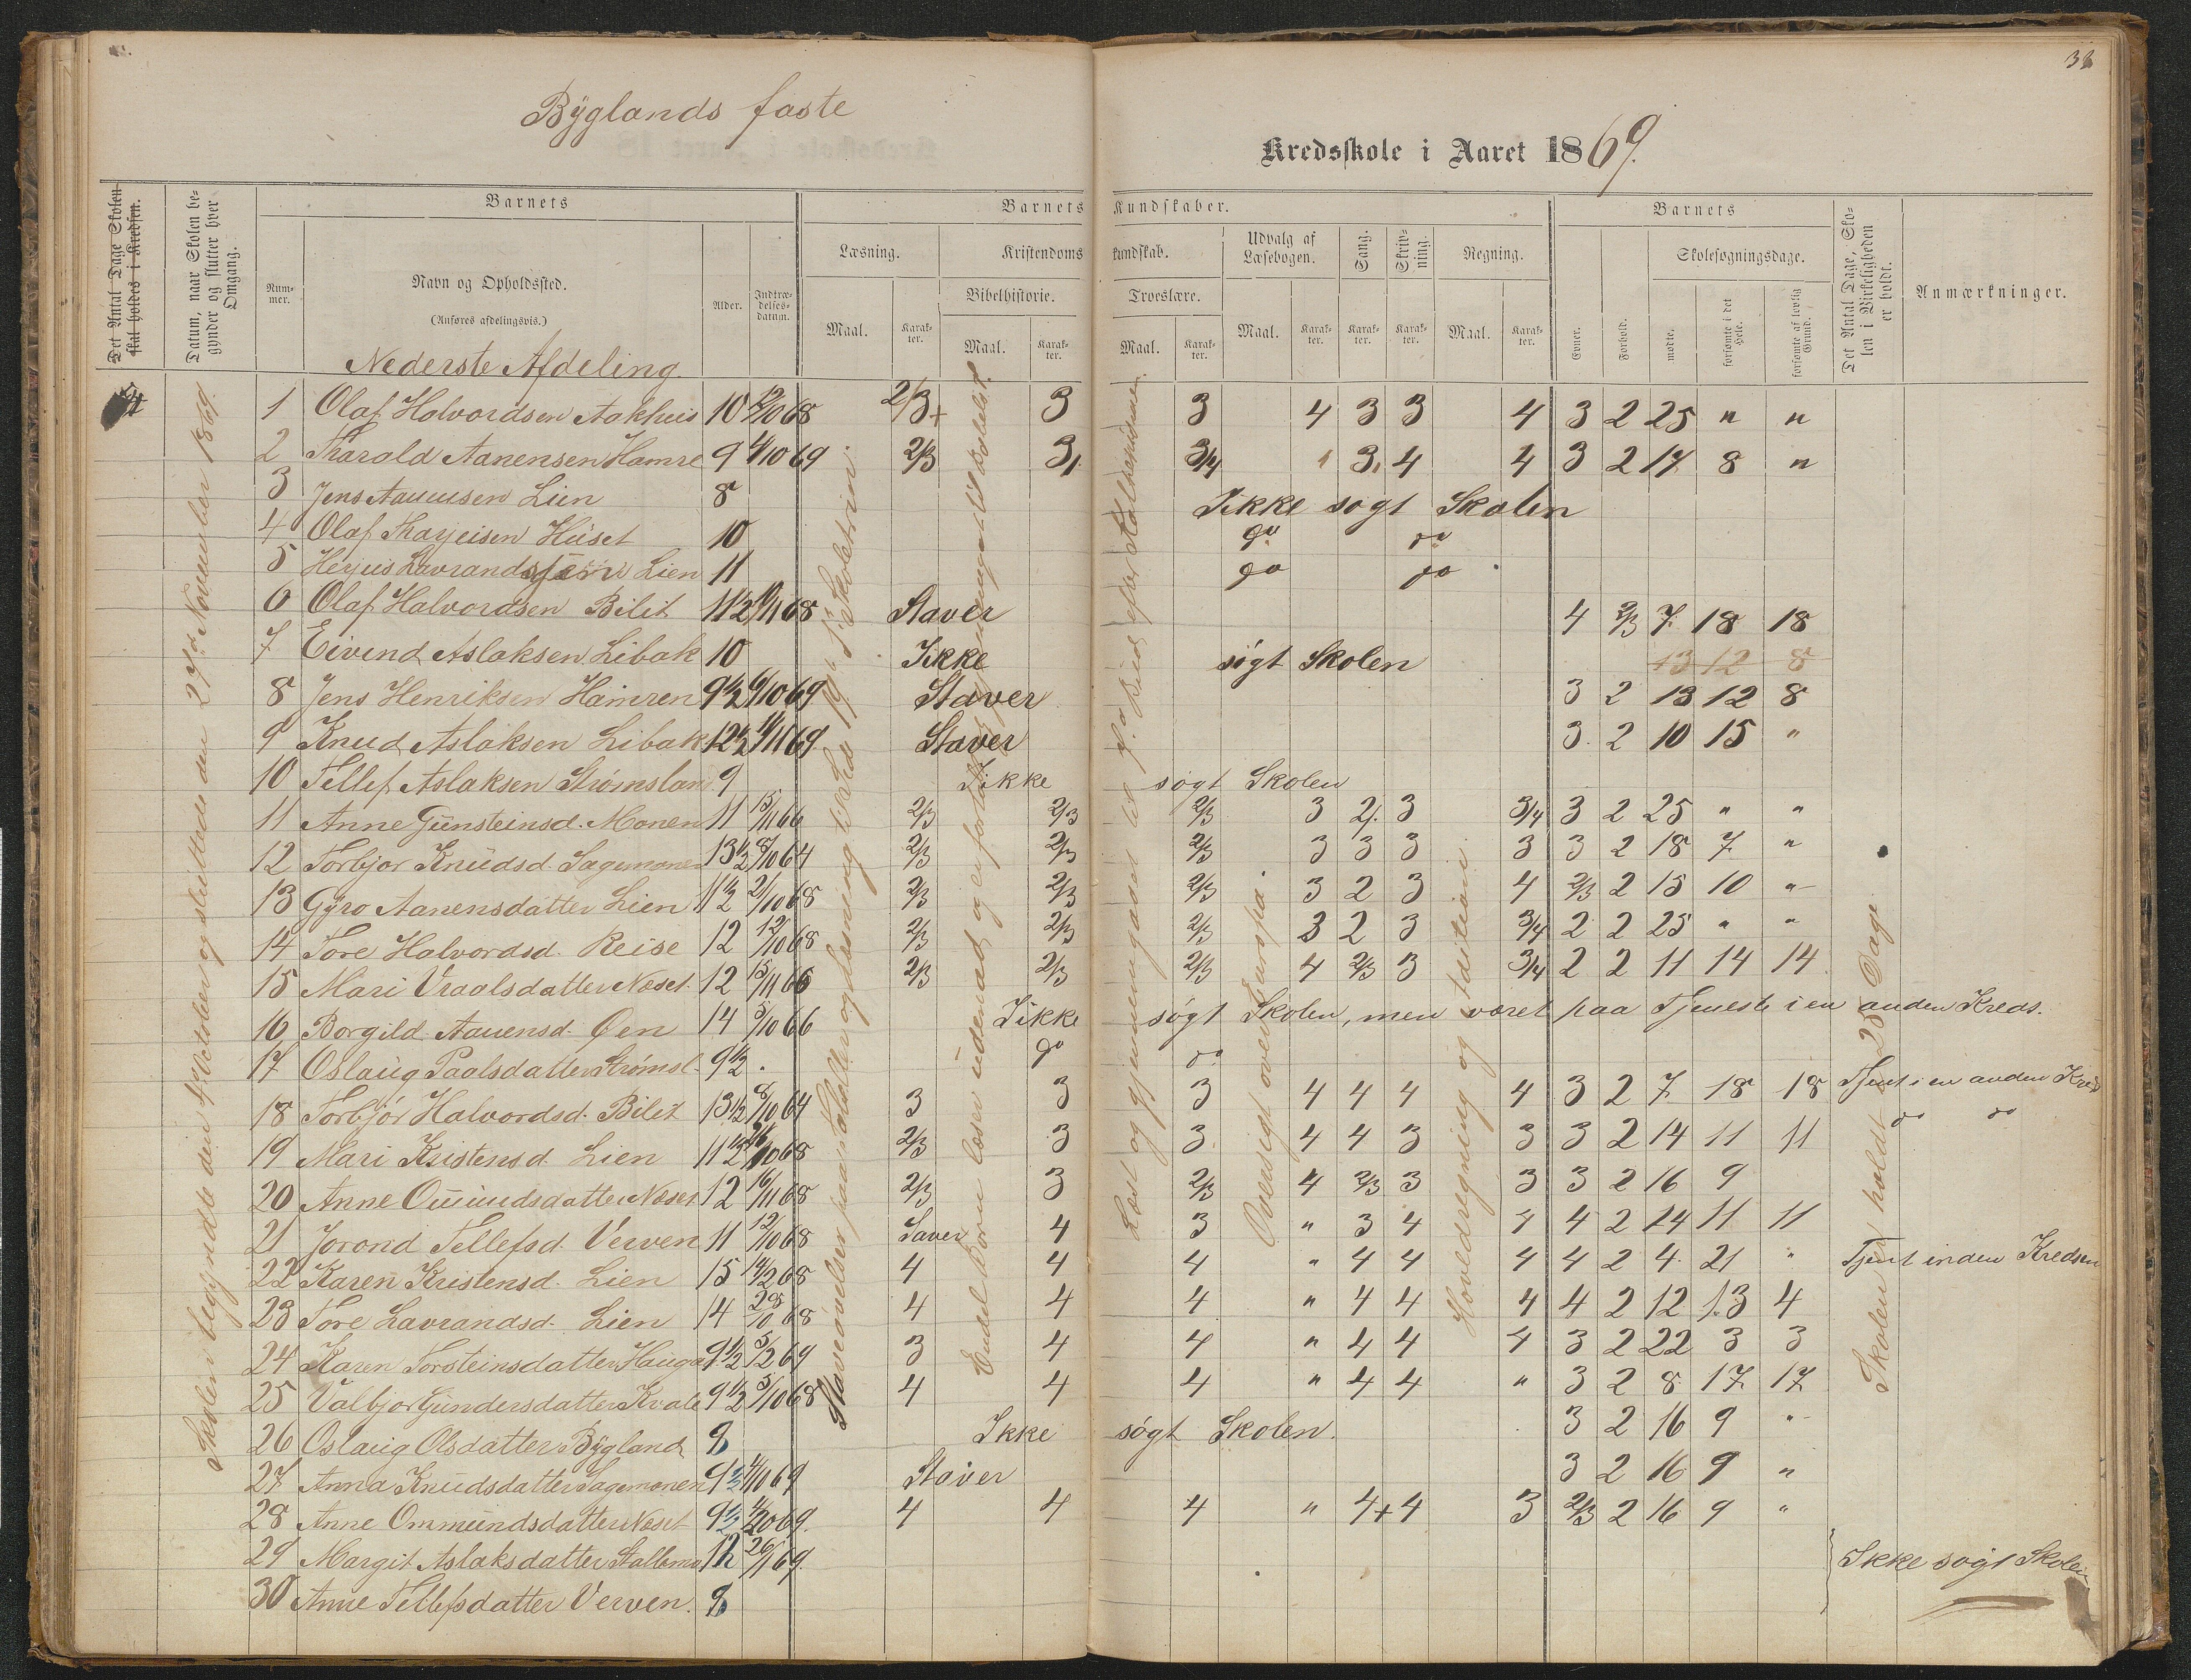 Bÿglands faste
38
Kredsskole i Aaret 1869.
Det Antal Dage Skolen skal holdes i Kredsen.
Datum, naar Skolen begynder og slutter hver Omgang.
Barnets
Nummer.
Navn og Opholdssted.
(Anføres afdelingsvis.)
Alder.
Indtrædelses-datum.
Barnets Kundskaber.
Læsning.
Maal.
Karakter.
Kristendomskundskab.
Bibelhistorie.
Maal.
Karakter.
Troeslære.
Maal.
Karakter.
Udvalg af Læsebogen.
Maal.
Karakter.
Sang.
Karakter.
Skrivning.
Karakter.
Regning.
Maal.
Karakter.
Barnets
Evner.
Forhold.
Skolesøgningsdage.
mødte.
forsømte i det Hele.
forsømte af lovlig Grund.
Det Antal Dage, Skolen i Virkeligheden er holdt.
Anmærkninger.
Nederste Afdeling.
Skolen begyndte den 4de October og sluttede den 27de November 1869.
Staveøvelser paa Stoltter og læsning til Side 19 i Skoletrin.
Endel Børn læser udenad og
Læst og gjennemgaaet til 7de Bud efter
Oversigt over Europa.
Hovedregning og
Skolen er holdt 25 Dage
1 Olaf Halvordsen Aakhus 10 12/10 68 2/3+ 3 3 4 3 3 4 3 2 25 " "
2 Tharald Aanensen Hamre 9 4/10 69 2/3 3, 3/4 3, 4 4 3 2 17 8 "
3 Jens Aanensen Lien 8 Ikke søgt Skolen
4 Olaf Tharjeisen Hüset 10 do do
5 Herjus Lavrandsen Lien 11 do do
6 Olaf Halvordsen Bilit 11 1/2 9/11 68 Staver 4 2/3 7 18 18
7 Eivind Aslaksen Libak 10 Ikke søgt Skolen 13 12 8
8 Jens Henriksen Hamren 9 1/2 4/10 69 Staver 3 2 13 12 8
9 Knud Aslaksen Libak 12 1/2 11/11 69. Staver 3. 2 10 15 "
10 Tellef Aslaksen Strømslan 9 Ikke søgt Skolen
11 Anne Günsteinsd. Monen 11 15/11 66 2/3 2/3 2/3 3 2/. 3 3/4 3 2 25 " "
12 Torbjor Knüdsd. Sagemonen 13 1/2 8/10 64 2/3 2/3 2/3 3 3 3 3 3 2 18 7 "
13 Gÿro Aanensdatter Lien 11 1/2 2/10 68 2/3 2/3 2/3 3 2 3 4 2/3 2 15 10 "
14 Tore Halvordsd. Reise 12 12/10 68 2/3 2/3 2/3 3 2 3 3/4 2 2 25 " "
15 Mari Vraalsdatter Næset. 12 15/11 66 2/3 2/3 2/3 4 2/3 3 3/4 2 2 11 14 14
16 Borgild Aanensd. Øen 14 5/10 66 Ikke søgt Skolen, men været paa Tjeneste i en anden Kreds.
17 Oslaug Paalsdatter Strømsl. 9 1/2 do do
18 Torbjór Halvordsd. Bilit 13 1/2 8/10 64 3 3 3 4 4 4 4 3 2 7 18 18 Tjent i en anden Kreds
19 Mari Kristensd. Lien 11 1/2 10 68 2/3 3 3. 4 4 3 3 3 2 14 11 11 do do
20 Anne Omündsdatter Næset 12 16/11 68 2/3 3 2/3 4 2/3 3 3 3 2 16 9
21 Jorond Tellefsd. Verven 11 12/10 68 Saver 4 3 " 3 4 4 4 2 14 11 11
22 Karen Kristensd. Lien 15 14/2 68 4 4 4 " 4 4 4 4 2 4 21 " Tjent inden Kredsen
23 Tore Lavrandsd. Lien 14 68 4 4 4 " 4 4 4 4 2 12 13 4
24 Karen Torsteinsdatter Hauga 9 1/2 5/2 69 3 4 4 " 4 4 4 3 2 22 3 3
25 Valbjor Gündersdatter Kvale 9 1/2 5/10 68 4 4 4 " 4 4 " 3 2 8 17 17
26 Oslaug Olsdatter Bÿgland 9 Ikke søgt Skolen. 3 2 16 9 "
27 Anna Knüdsdatter Sagemonen 9 1/2 4/10 69 Staver 3 2 16 9 "
28 Anne Ommündsdatter Næset 9 1/2 69. 4 4 4 " 4+ 4 3 2/3 2 16 9 "
29 Margit Aslaksdatter Stallemo 12 26/1 69. Ikke søgt Skolen
30 Anne Tellefsdatter Verven. 9